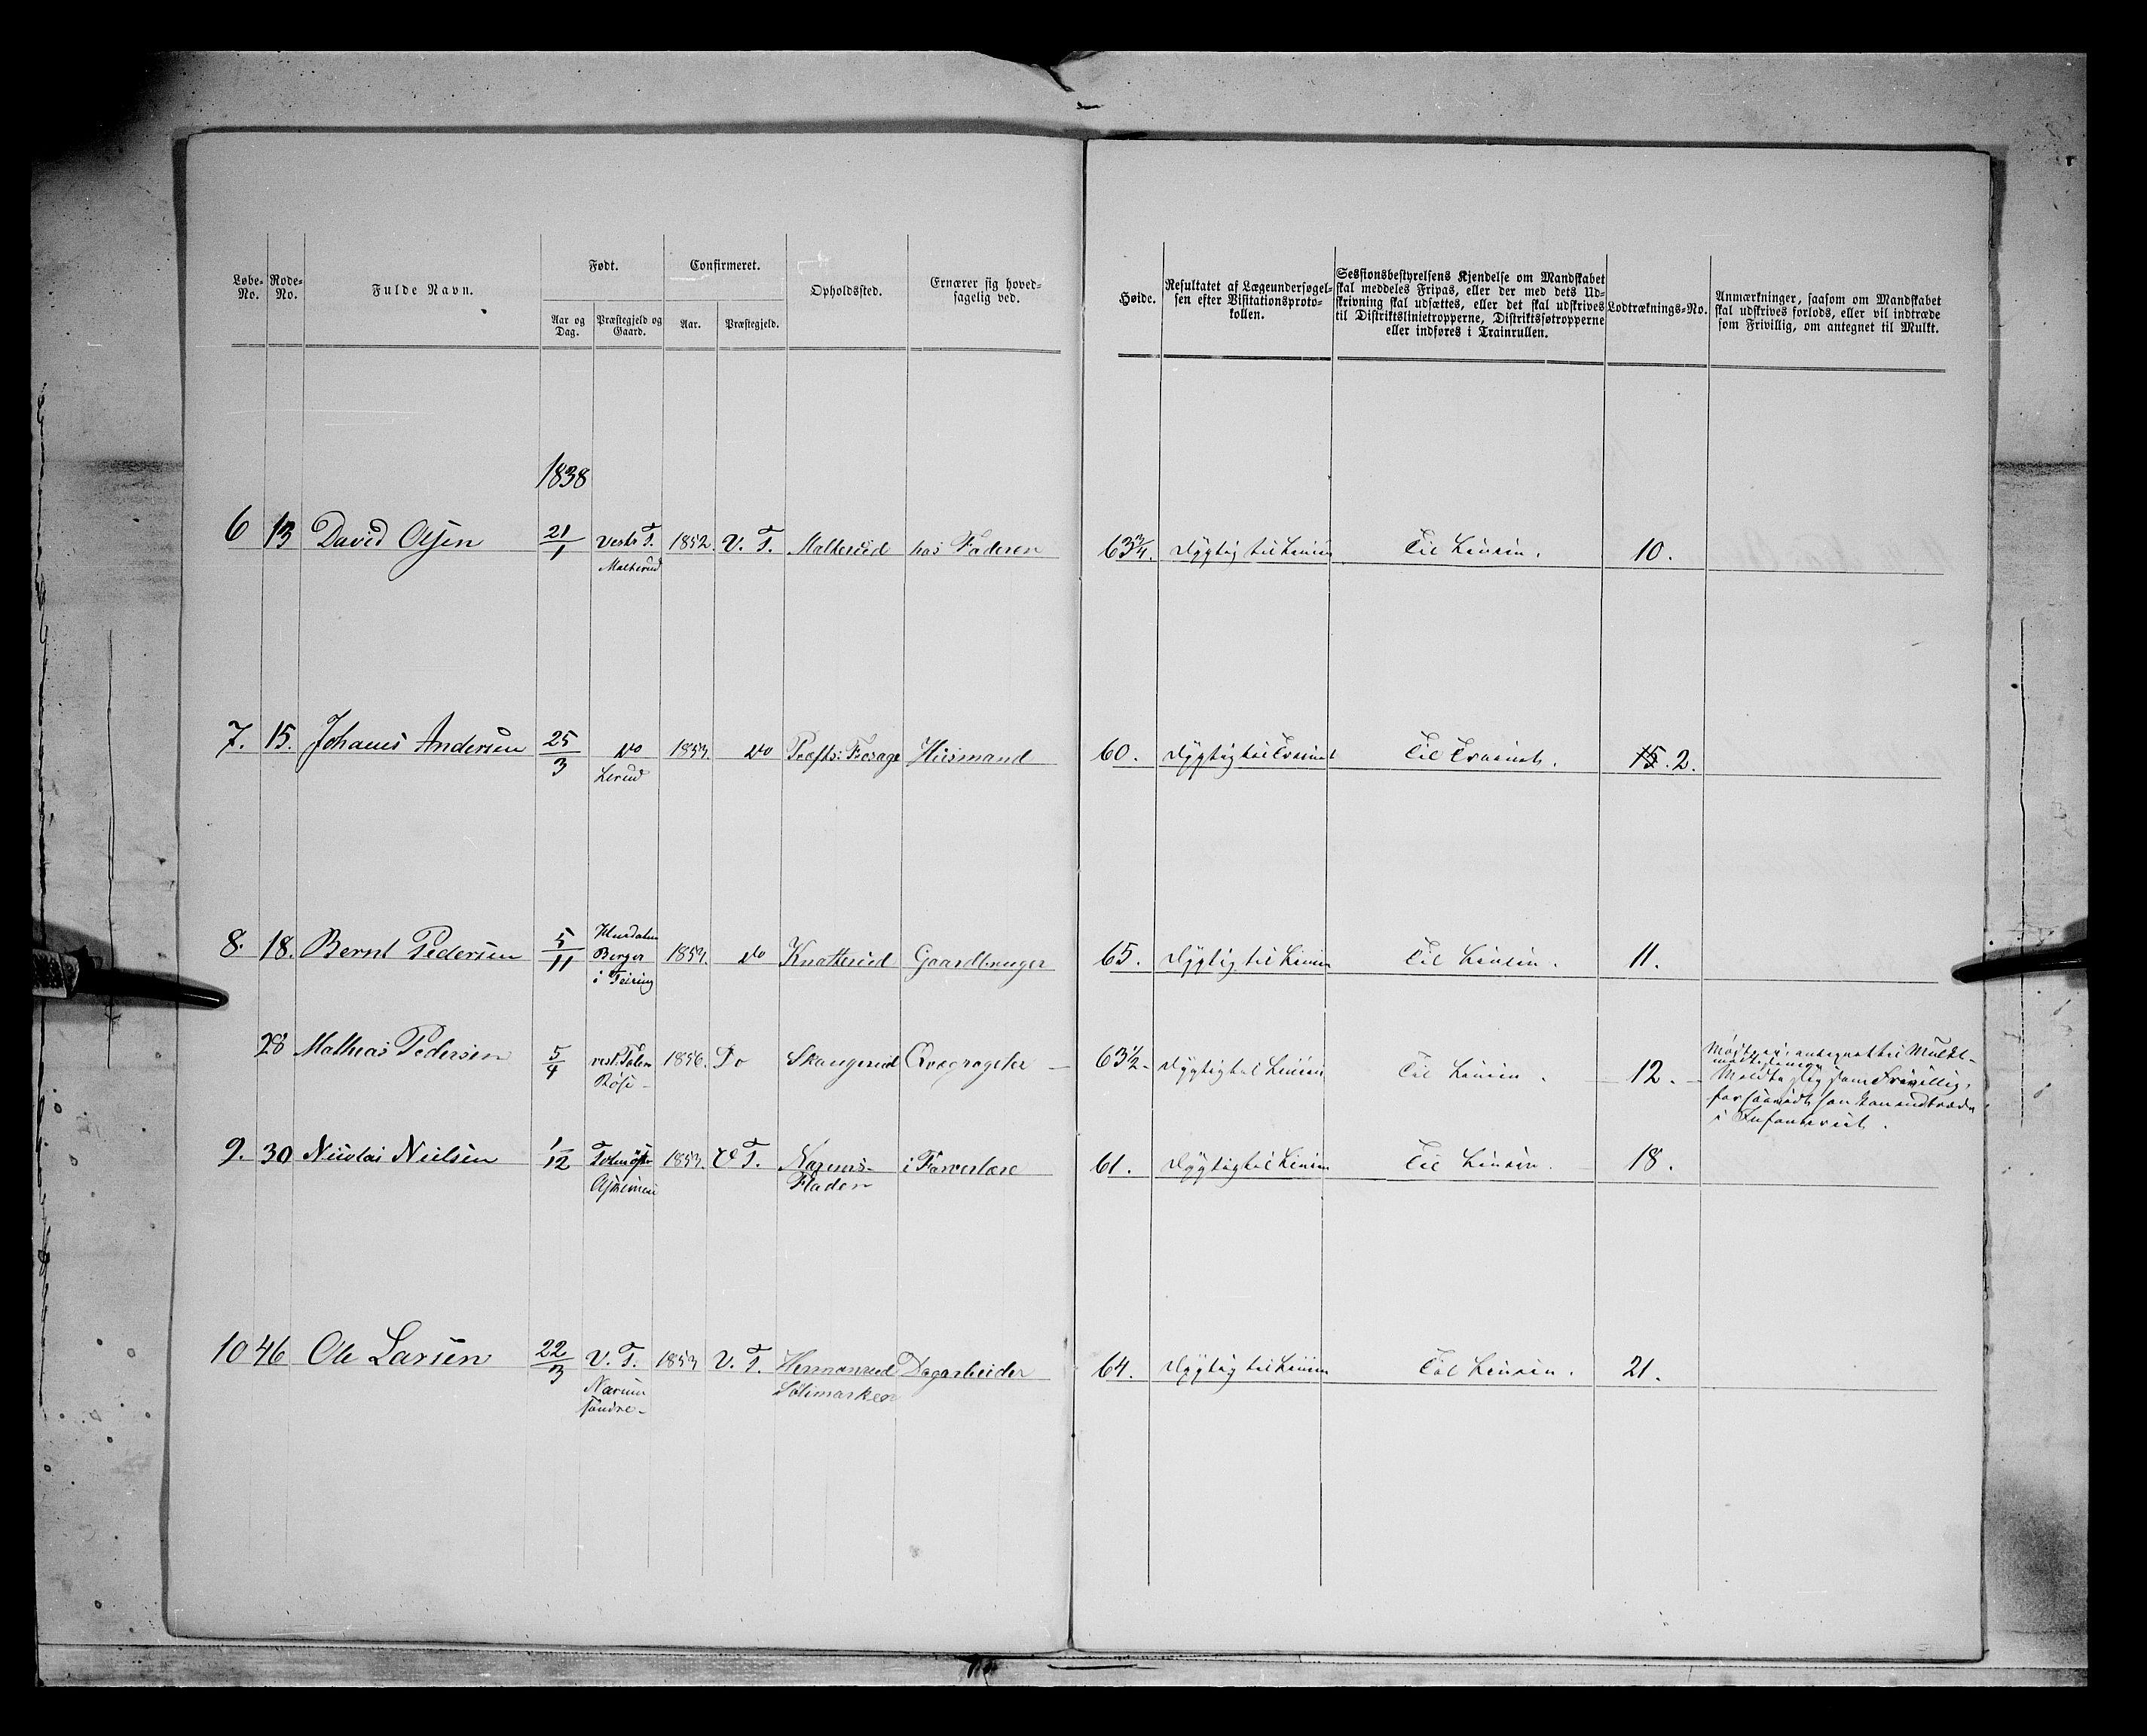 Løbe-No. Rode-No. Fulde Navn. Født. Confirmeret. Opholdssted. Ernærer sig hovedsagelig ved.
Aar og Dag. Præstegjeld og Gaard. Aar. Præstegjeld.
Høide. Resultatet af Lægeundersøgelsen efter Visitationsprotokollen. Sessionsbestyrelsens Kjendelse om Mandskabet skal meddeles Fripas, eller der med dets Udskrivning skal udsættes, eller det skal udskrives til Distriktslinietropperne, Distriktsfotropperne eller indføres i Trainrullen. Lodtræknings-No. Anmærkninger, saasom om Mandskabet skal udskrives forlods, eller vil indtræde som Frivillig, om antegnet til Mulkt.
1838
6 13 David Olsen 21/1 Vestr T. 1852 V. T. Malterud hos Faderen 63 3/4. Dygtig til Linien Til Linien. 10.
Malterud
7. 15. Johanes Andersen 25/3 do 1853. do Huusmand 60. Dygtig til Trainet Til Trainet. 15. 2.
Lerud
8. 18. Bernt Pedersen 5/11 Hurdalen 1854. do Knatterud Gaardbruger 65. Dygtig til Linien Til Linien. 11.
Berger
i Feiring
28 Mathias Pedersen 5/4 vest Toten 1856. Do Skaugerud 63 1/2 Dygtig til Linien Til Linien. 12.
Mødte ei, antegnet til Mulkt
som Frivillig,
i Infanteriet.
9. 30 Nicolai Nielsen 1/12 1853. V T. Nærums- i Farverlære 61. Dygtig til Linien Til Linien. 18.
Fladen
10 46 Ole Larsen 22/3 V. T. 1853 V. T. Hermanrud Dagarbeider 64. Dygtig til Linien Til Linien. 21.
Nærum
søndre